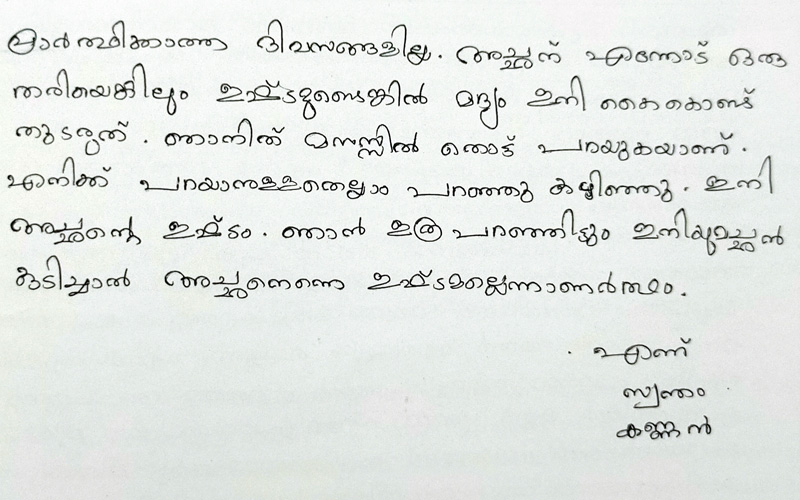 പ്രാർത്ഥിക്കാത്ത ദിവസങ്ങളില്ല. അച്ഛന് എന്നോട് ഒരു
തരിയെങ്കിലും ഇഷ്ടമുണ്ടെങ്കിൽ മദ്യം ഇനി കൈകൊണ്ട്
തുടരുത്. ഞാനിത് മനസ്സിൽ തൊട്ട് പറയുകയാണ്.
എനിക്ക് പറയാനുള്ളതെല്ലാം പറഞ്ഞു കഴിഞ്ഞു. ഇനി
അച്ഛന്റെ ഇഷ്ടം. ഞാൻ ഇത്ര പറഞ്ഞിട്ടും ഇനിയുമച്ഛൻ
കുടിച്ചാൽ അച്ഛനെന്നെ ഇഷ്ടമല്ലെന്നാണർത്ഥം.
എന്ന്
സ്വന്തം
കണ്ണൻ